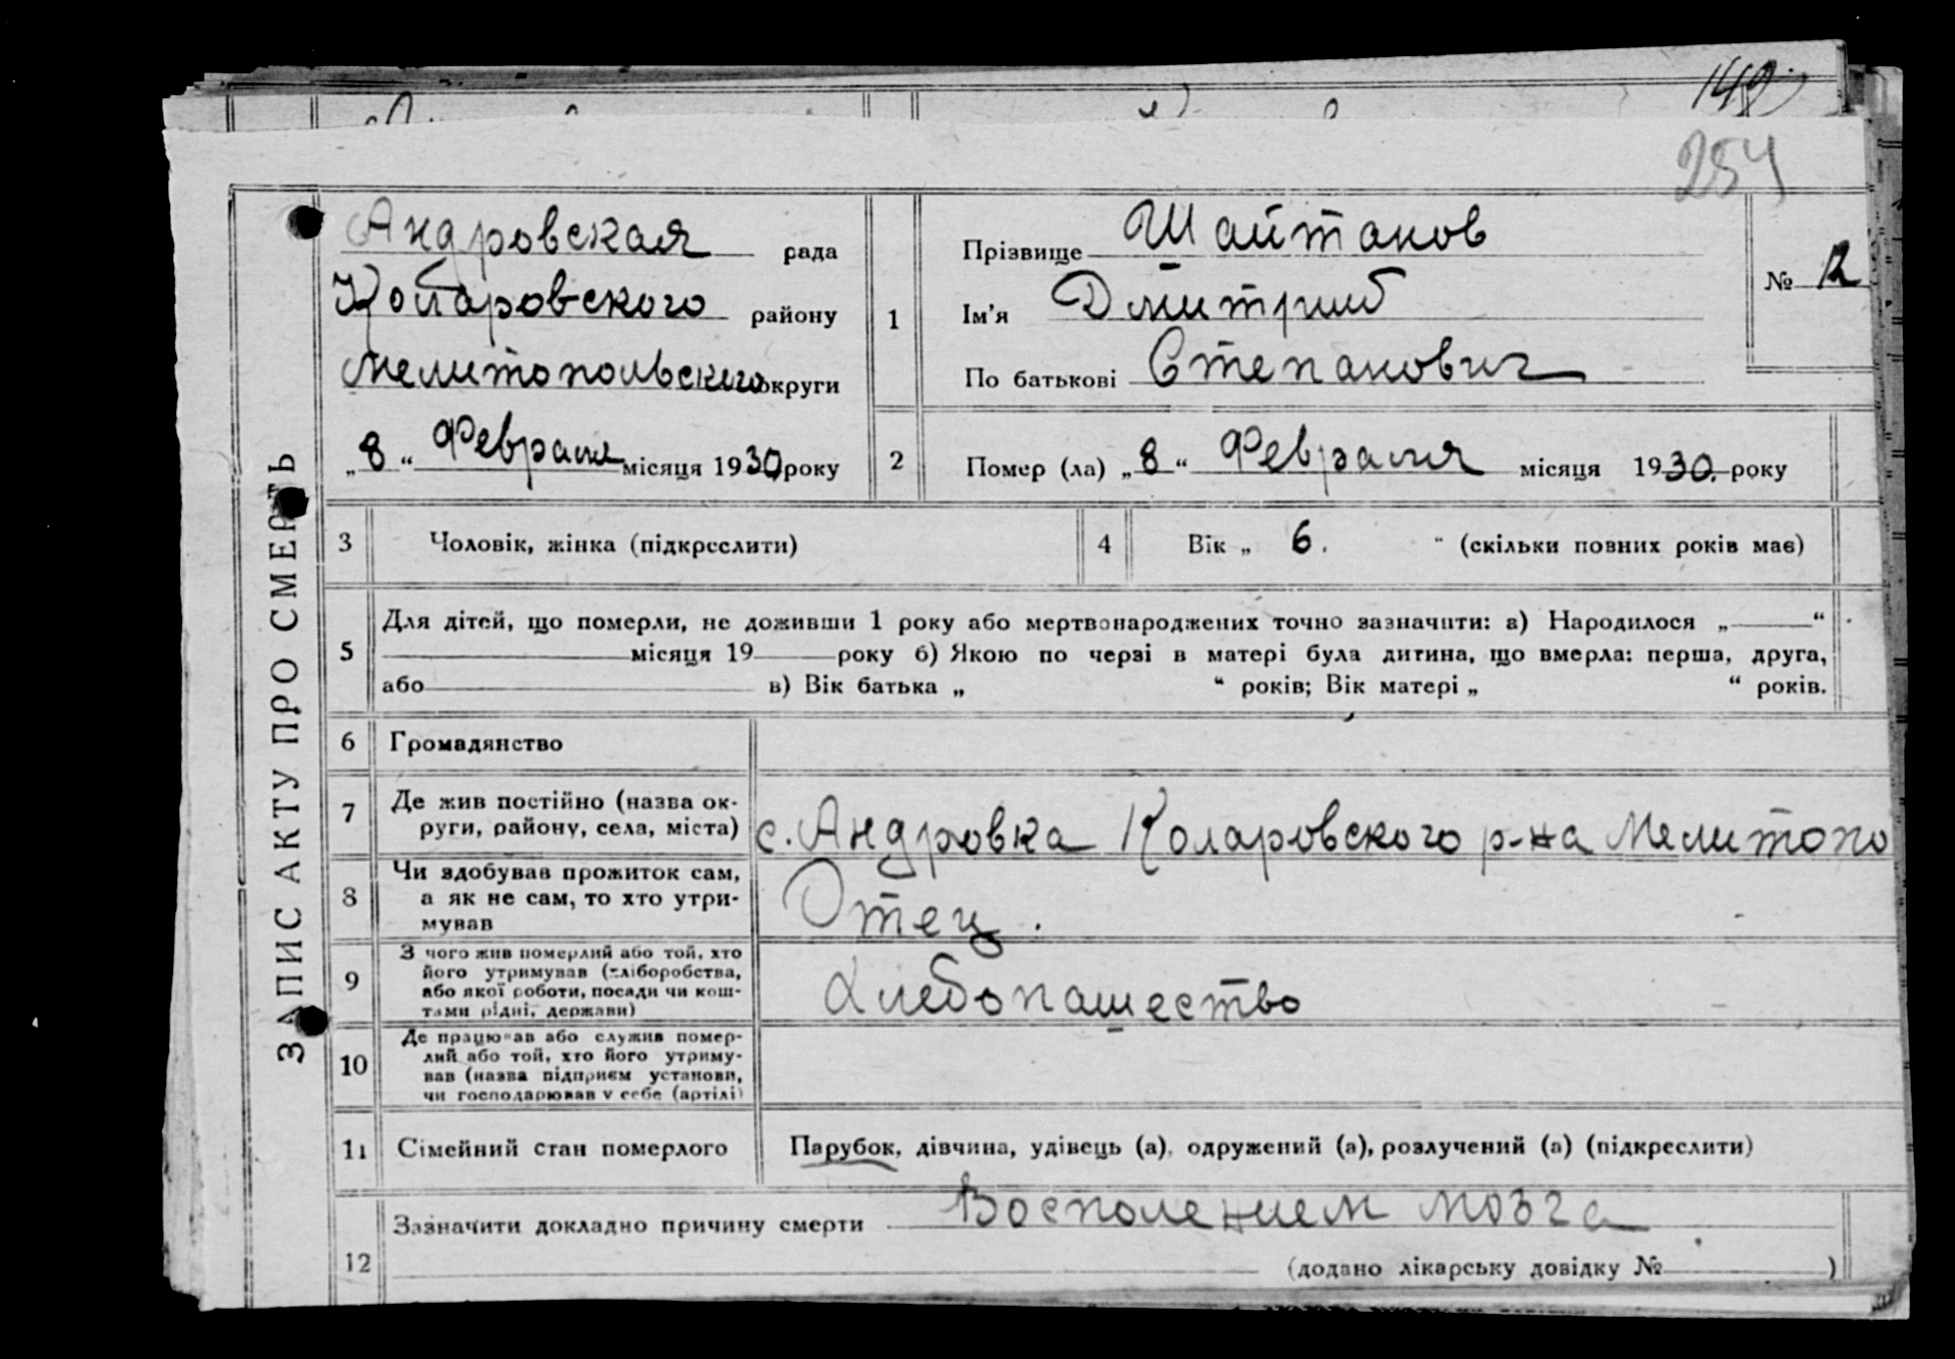 149
254
ЗАПИС АКТУ ПРО СМЕРТЬ
Андровская рада
Коларовского району
Мелитопольского округи
„8“ Февраля місяця 1930 року
1
Прізвище Шайтанов
Ім'я Дмитрий
По батькові Степанович
№ 12
2
Помер (ла) „8“ Февраля місяця 1930. року
3 Чоловік, жінка (підкреслити)
4 Вік „ 6. “ (скільки повних років має)
5
Для дітей, що померли, не доживши 1 року або мертвонароджених точно зазначити: а) Народилося „ “
місяця 19 року б) Якою по черзі в матері була дитина, що вмерла: перша, друга,
або в) Вік батька „ “ років; Вік матері „ “ років.
6 Громадянство
7 Де жив постійно (назва ок-
руги, району, села, міста)
с. Андровка Коларовского р-на Мелитопо
8 Чи здобував прожиток сам,
а як не сам, то хто утри-
мував
Отец.
9 З чого жив померлий або той, хто
його утримував (хліборобства,
або якої роботи, посади чи кош-
тами рідні, держави)
Хлебопашество
10 Де працював або служив помер-
лий або той, хто його утриму-
вав (назва підприєм установи,
чи господарював у себе (артілі)
11 Сімейний стан померлого
Парубок, дівчина, удівець (а), одружений (а), розлучений (а) (підкреслити)
12 Зазначити докладно причину смерти Восполением мозга
(додано лікарську довідку № )